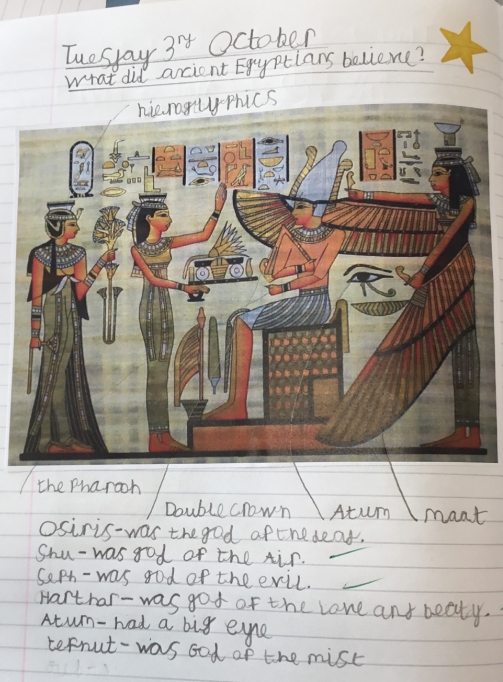 Tuesday 3rd October
What did ancient Egryptians believe?
hieroglyphics
the Pharaoh
Double crown
Atum
maat
Osiris-was the god of the dead.
Shu-was god of the Air.
Seph-was god of the evil.
Harthor-was god of the Love and beaty.
Atum-had a big eye
tefnut-was God of the mist